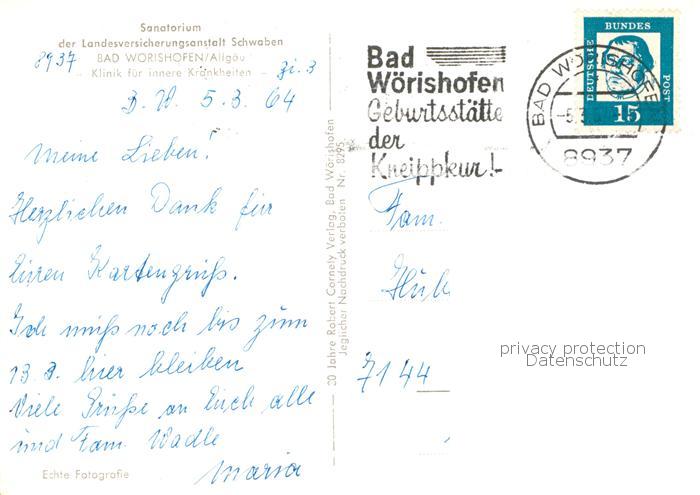 Sanatorium
der Landesversicherungsanstalt Schwaben
BAD WÖRISHOFEN/Allgäu
- Klinik für innere Krankheiten -
8937
Zi. 3
B. W. 5. 3. 64
Meine Lieben!
Herzlichen Dank für
Euren Kartengruß.
Ich muß noch bis zum
13. 3. hier bleiben
Viele Grüße an Euch alle
und Fam. Wadle
Maria
Echte Fotografie
30 Jahre Robert Cornely Verlag, Bad Wörishofen
Jeglicher Nachdruck verboten Nr. 8295
Bad
Wörishofen
Geburtsstätte
der
Kneippkur!
DEUTSCHE BUNDES POST
15
BAD WÖRISHOFE
-5.3.
8937
Fam.
Hub
7144
privacy protection
Datenschutz